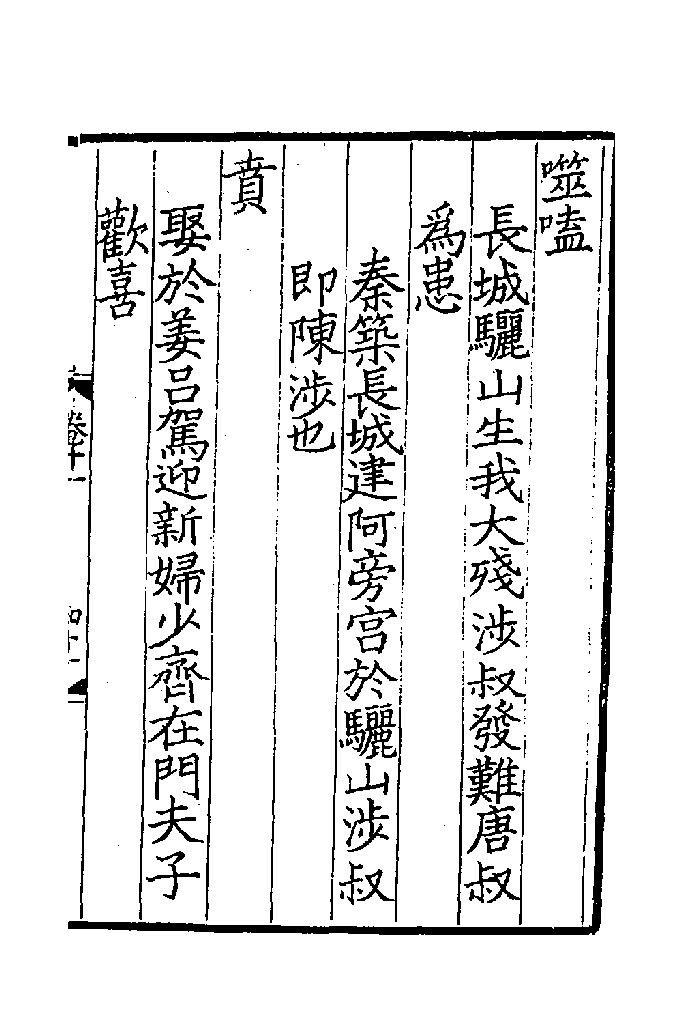 噬嗑
長城驪山生我大殘涉叔發難唐叔
爲患
秦築長城建阿旁宫於驪山涉叔
即陳涉也
賁
娶於姜吕駕迎新婦少齊在門夫子
歡喜
卷十一